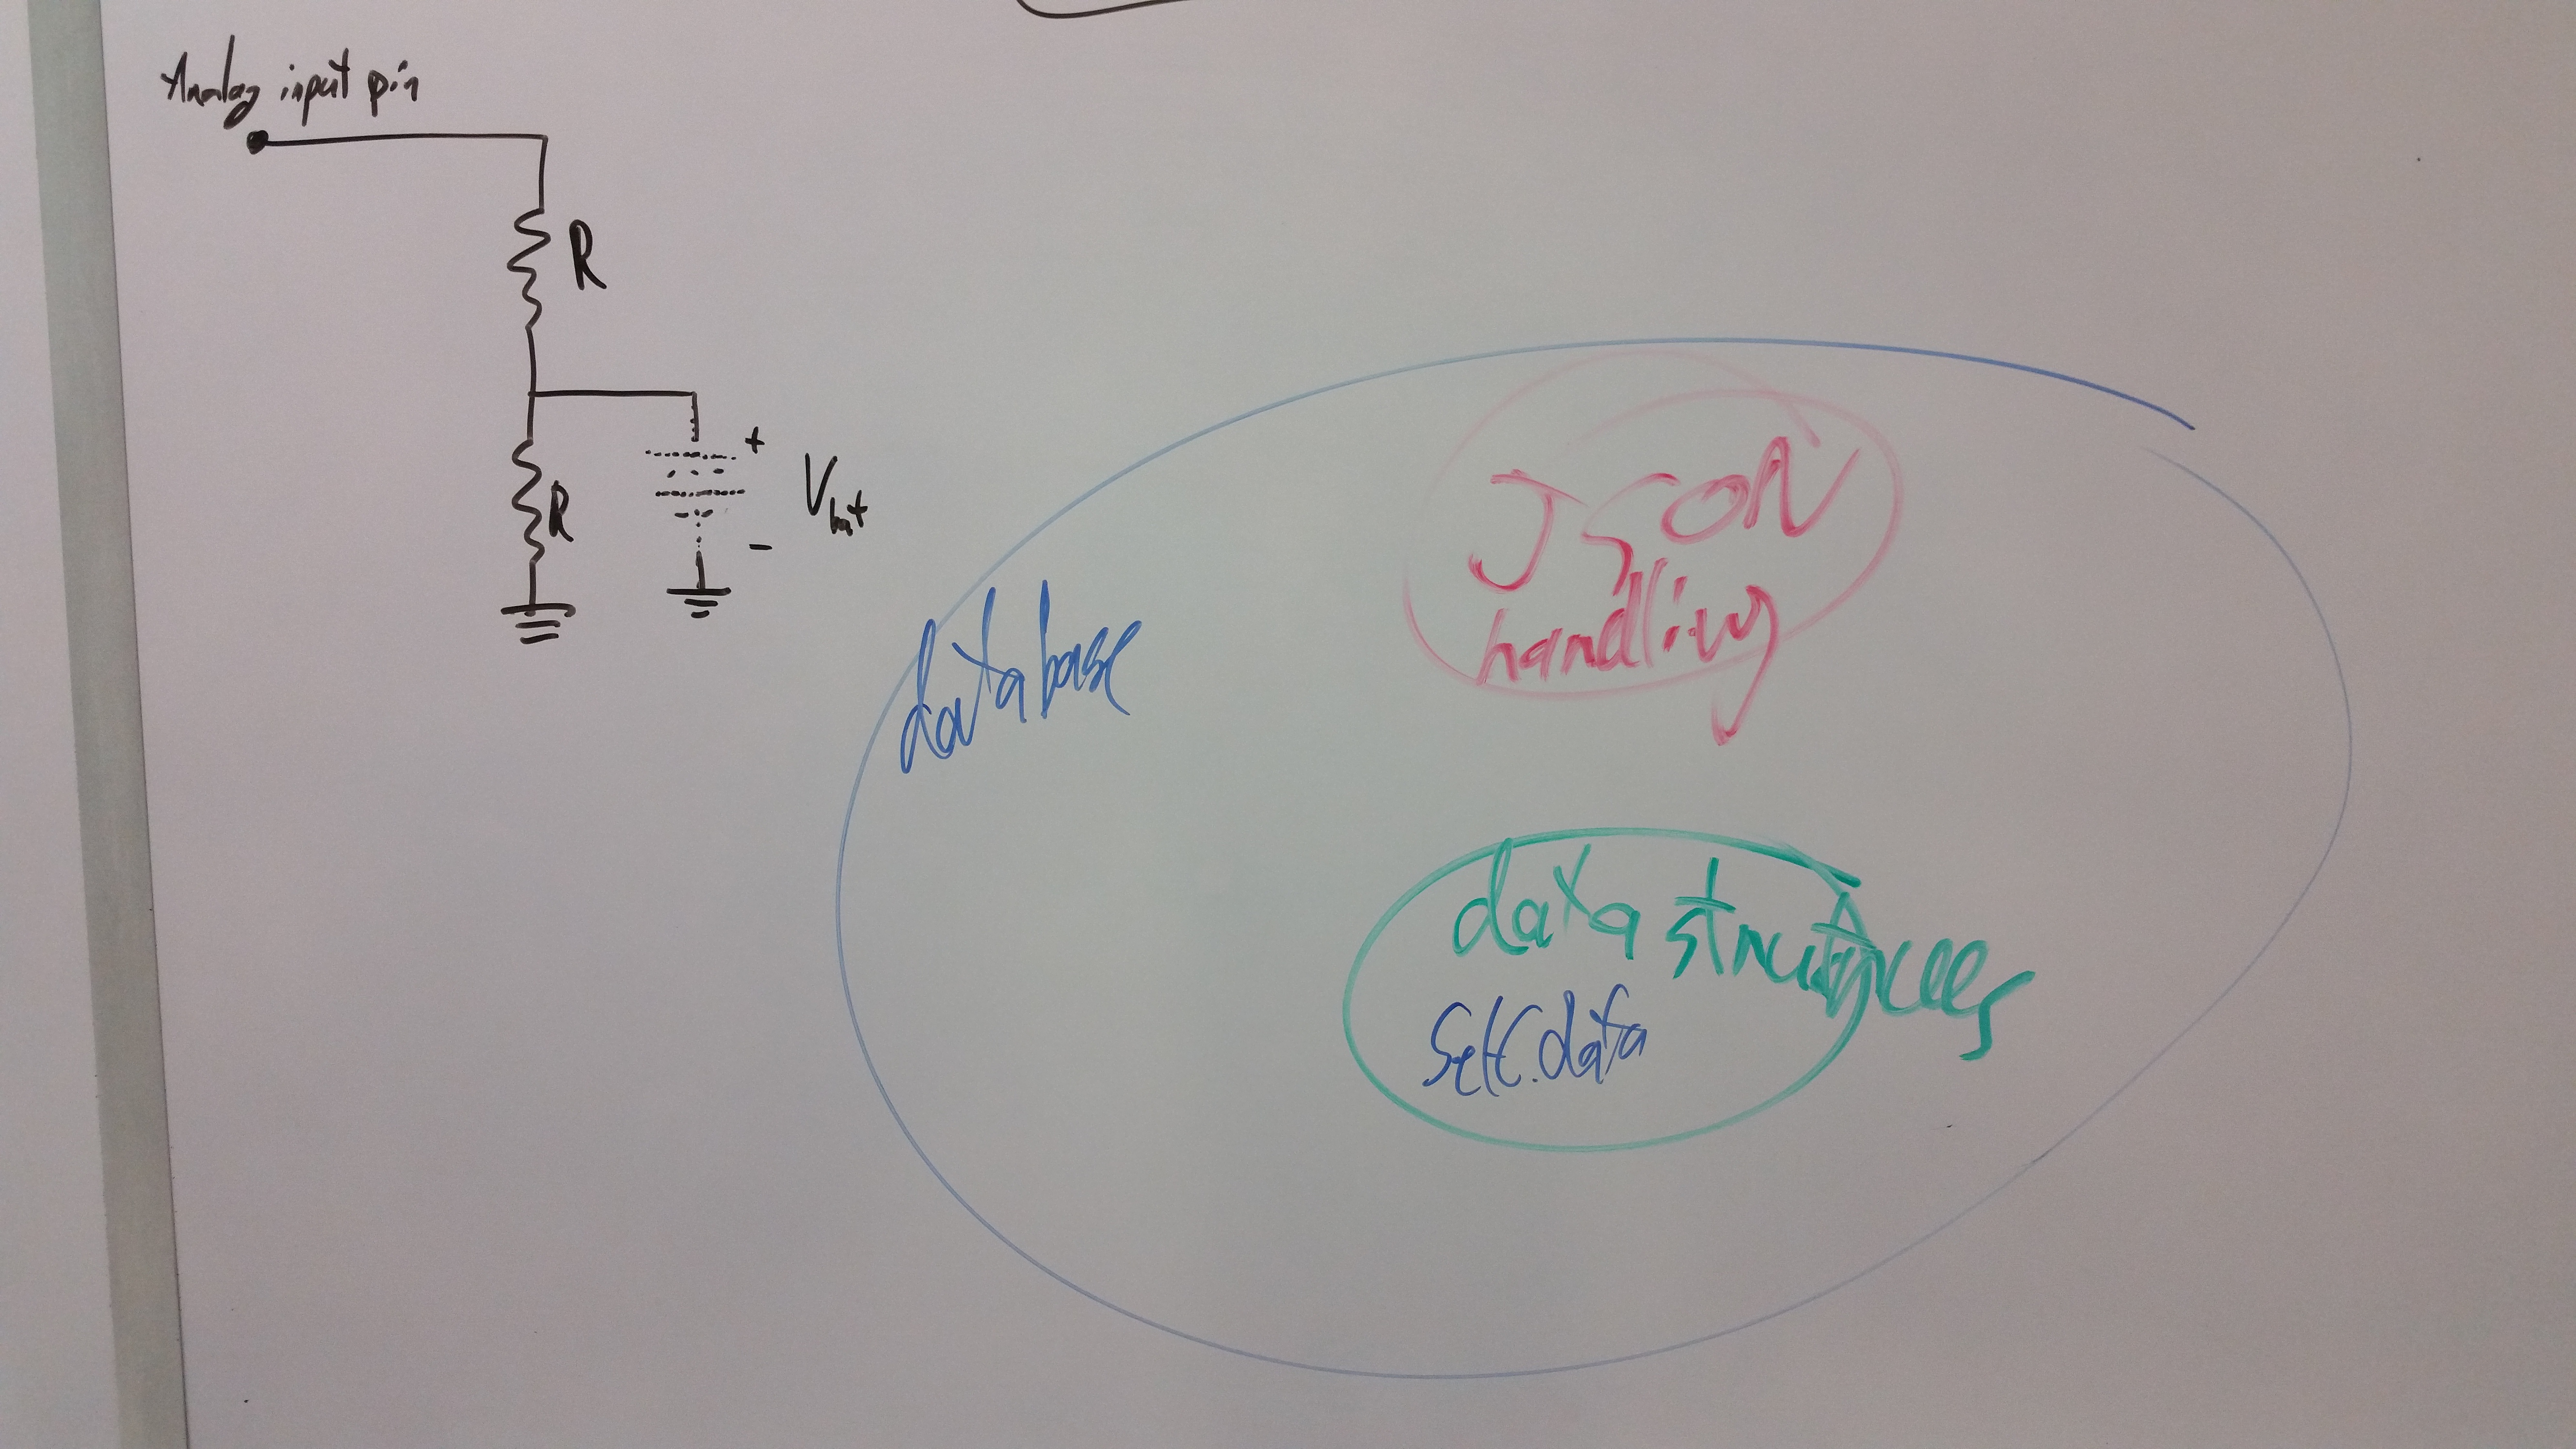 Analog input pin
R
R
+
-
Vbat
database
JSON
handling
data structures
self.data